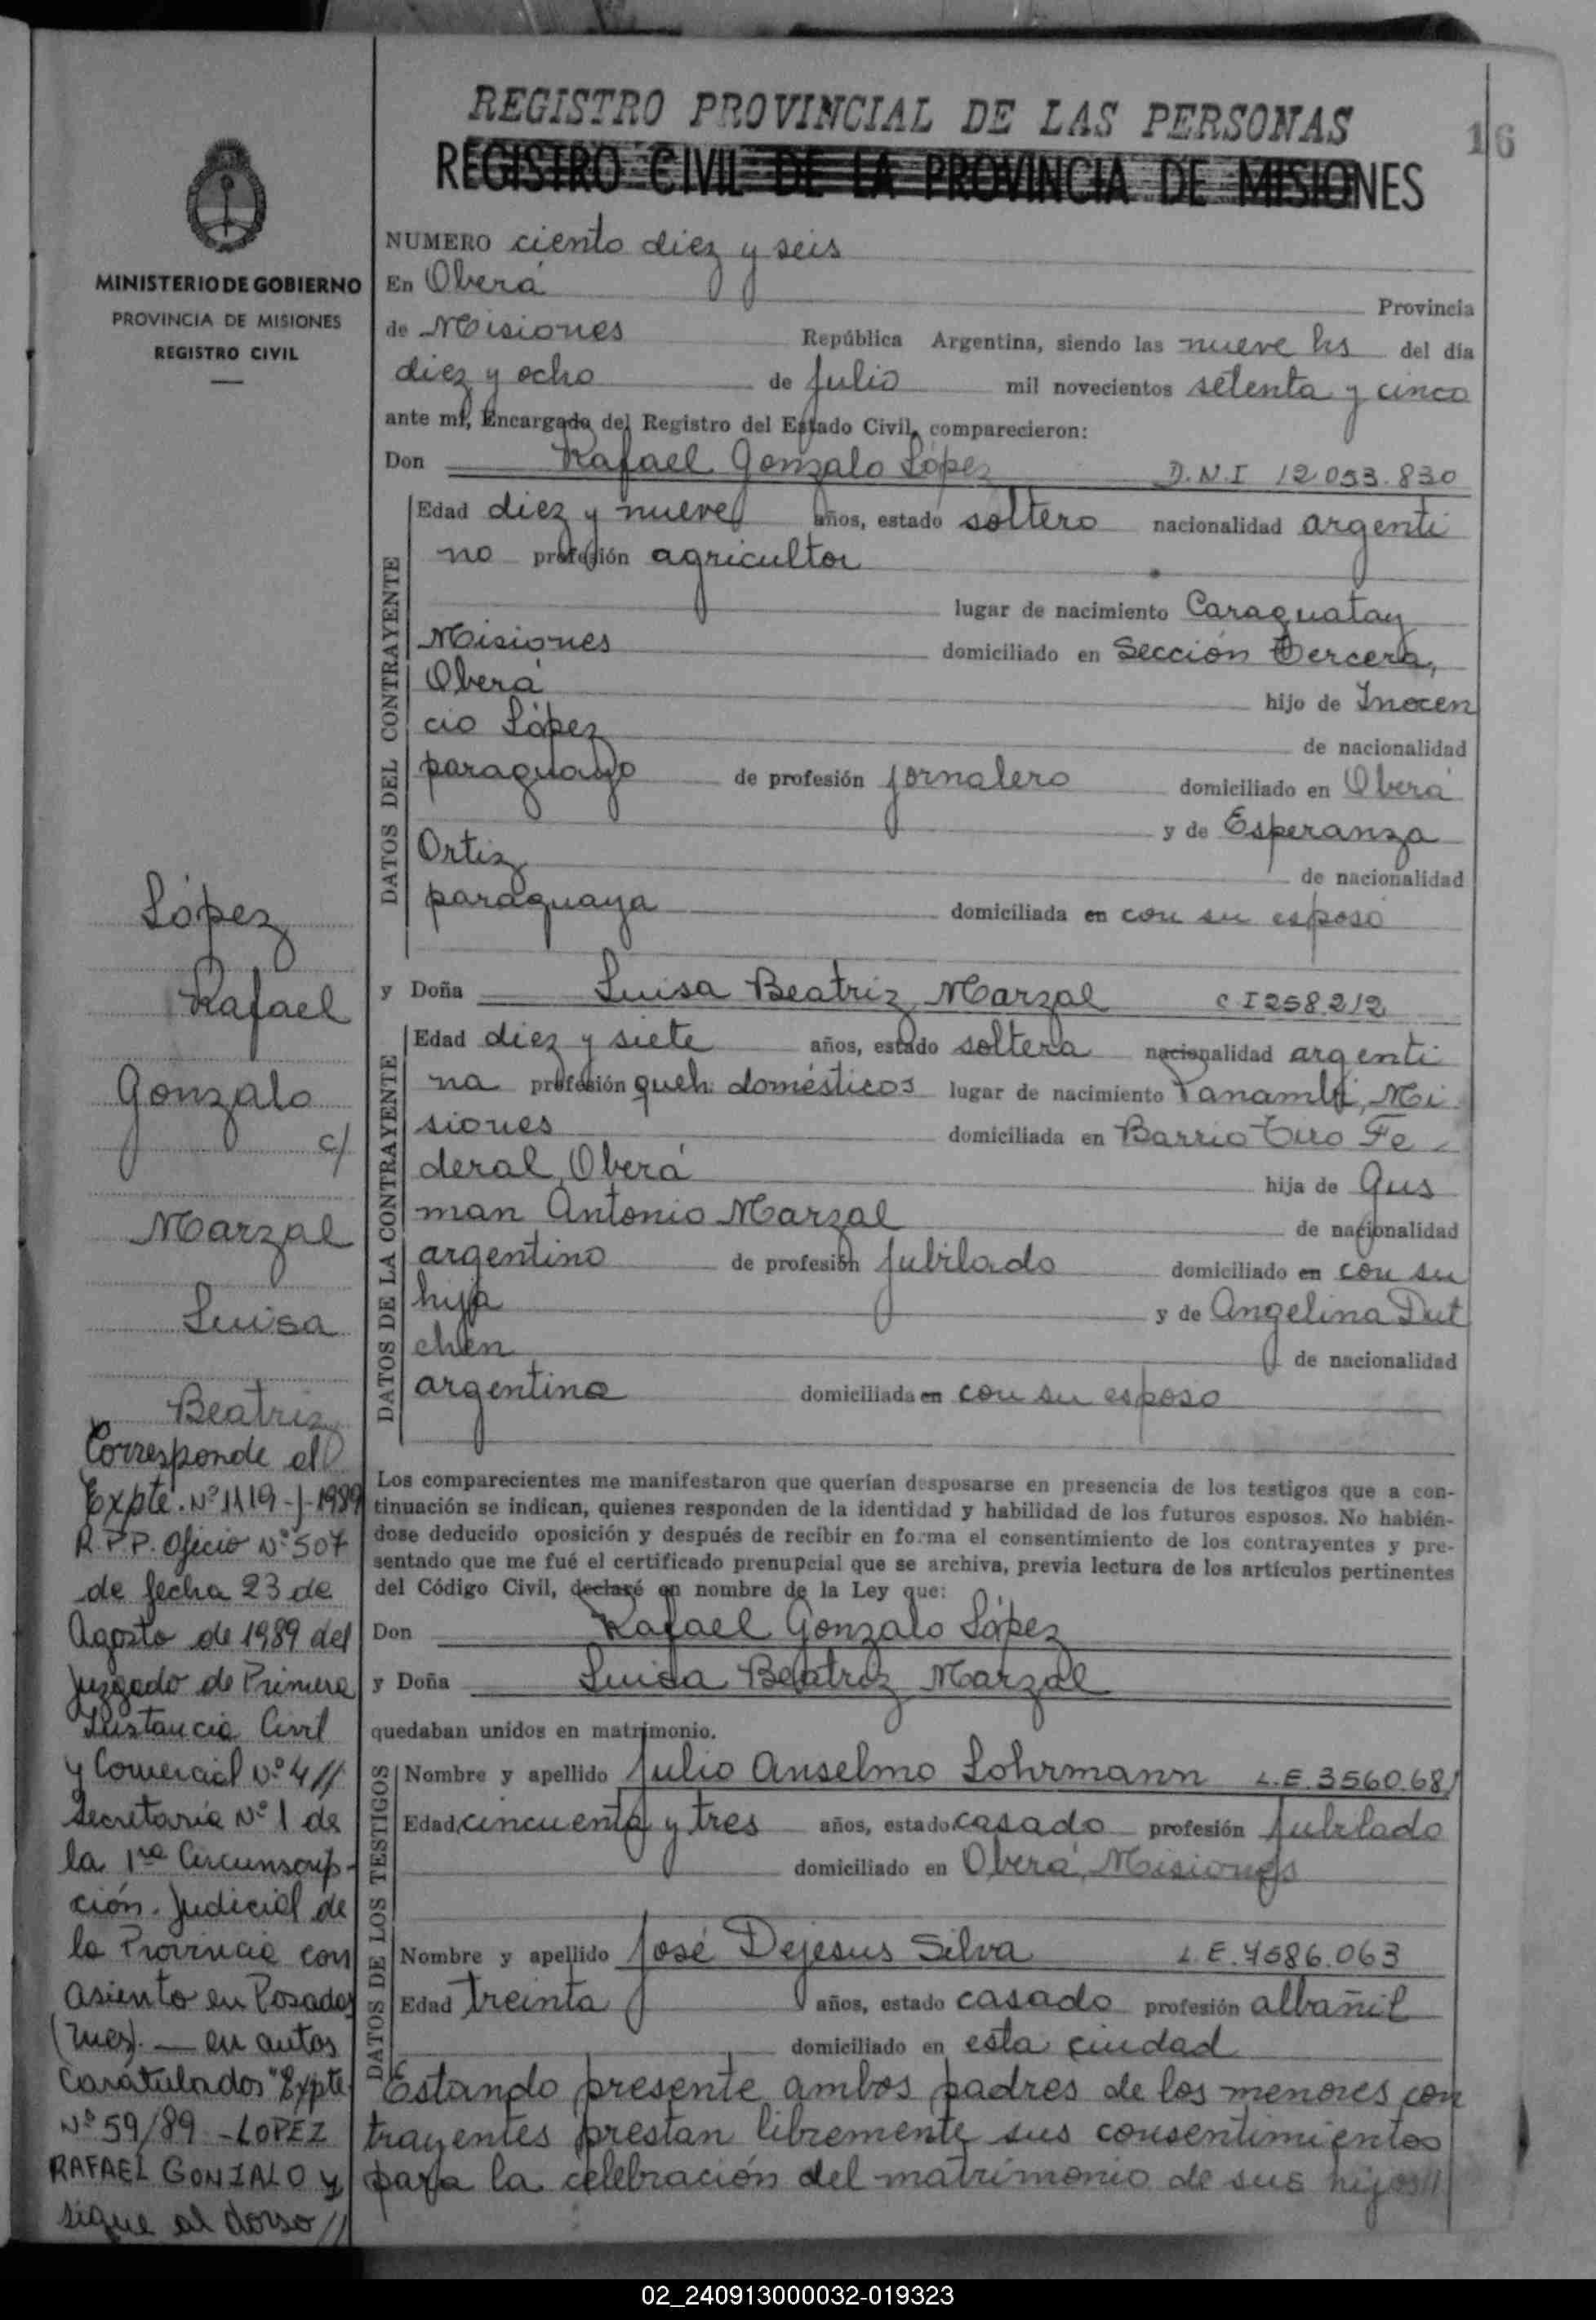 REGISTRO PROVINCIAL DE LAS PERSONAS
16
REGISTRO CIVIL DE LA PROVINCIA DE MISIONES
MINISTERIO DE GOBIERNO
PROVINCIA DE MISIONES
REGISTRO CIVIL
NUMERO ciento diez y seis
En Oberá Provincia
de Misiones República Argentina, siendo las nueve hs del día
diez y ocho de Julio mil novecientos setenta y cinco
ante mí, Encargado del Registro del Estado Civil, comparecieron:
Don Rafael Gonzalo López D.N.I 12.053.830
DATOS DEL CONTRAYENTE
Edad diez y nueve años, estado soltero nacionalidad argenti
no profesión agricultor
lugar de nacimiento Caraguatay
Misiones domiciliado en Sección Tercera,
Oberá hijo de Inocen
cio López de nacionalidad
paraguayo de profesión jornalero domiciliado en Oberá
y de Esperanza
Ortiz de nacionalidad
paraguaya domiciliada en con su esposo
y Doña Luisa Beatriz Marzal C I 258.212
DATOS DE LA CONTRAYENTE
Edad diez y siete años, estado soltera nacionalidad argenti
na profesión queh. domésticos lugar de nacimiento Panambí, Mi
siones domiciliada en Barrio Tiro Fe
deral, Oberá hija de Gus
man Antonio Marzal de nacionalidad
argentino de profesión Jubilado domiciliado en con su
hija y de Angelina Dut
chen de nacionalidad
argentina domiciliada en con su esposo
Los comparecientes me manifestaron que querían desposarse en presencia de los testigos que a con-
tinuación se indican, quienes responden de la identidad y habilidad de los futuros esposos. No habién-
dose deducido oposición y después de recibir en forma el consentimiento de los contrayentes y pre-
sentado que me fué el certificado prenupcial que se archiva, previa lectura de los artículos pertinentes
del Código Civil, declaré en nombre de la Ley que:
Don Rafael Gonzalo López
y Doña Luisa Beatriz Marzal
quedaban unidos en matrimonio.
DATOS DE LOS TESTIGOS
Nombre y apellido Julio Anselmo Lohrmann L.E. 3560.681
Edad cincuenta y tres años, estado casado profesión Jubilado
domiciliado en Oberá, Misiones
DATOS DE LOS TESTIGOS
Nombre y apellido José Dejesus Silva L.E. 7586.063
Edad treinta años, estado casado profesión albañil
domiciliado en esta ciudad
Estando presente ambos padres de los menores con
trayentes prestan libremente sus consentimientos
para la celebración del matrimonio de sus hijos//
López
Rafael
Gonzalo
c/
Marzal
Luisa
Beatriz
Corresponde al
Expte. Nº 1119-J-1989
R.P.P. Oficio Nº 507
de fecha 23 de
Agosto de 1989 del
Juzgado de Primera
Instancia Civil
y Comercial Nº 4//
Secretaría Nº 1 de
la 1ra Circunscrip-
ción. Judicial de
la Provincia con
asiento en Posadas
(Mnes). — en autos
Caratulados "Expte
Nº 59/89 - LOPEZ
RAFAEL GONZALO y
sigue al dorso//
02_240913000032-019323